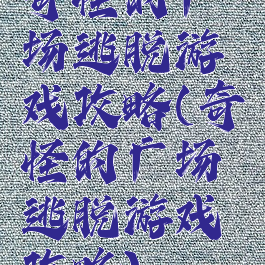 奇怪的广
场逃脱游
戏攻略(奇
怪的广场
逃脱游戏
攻略)